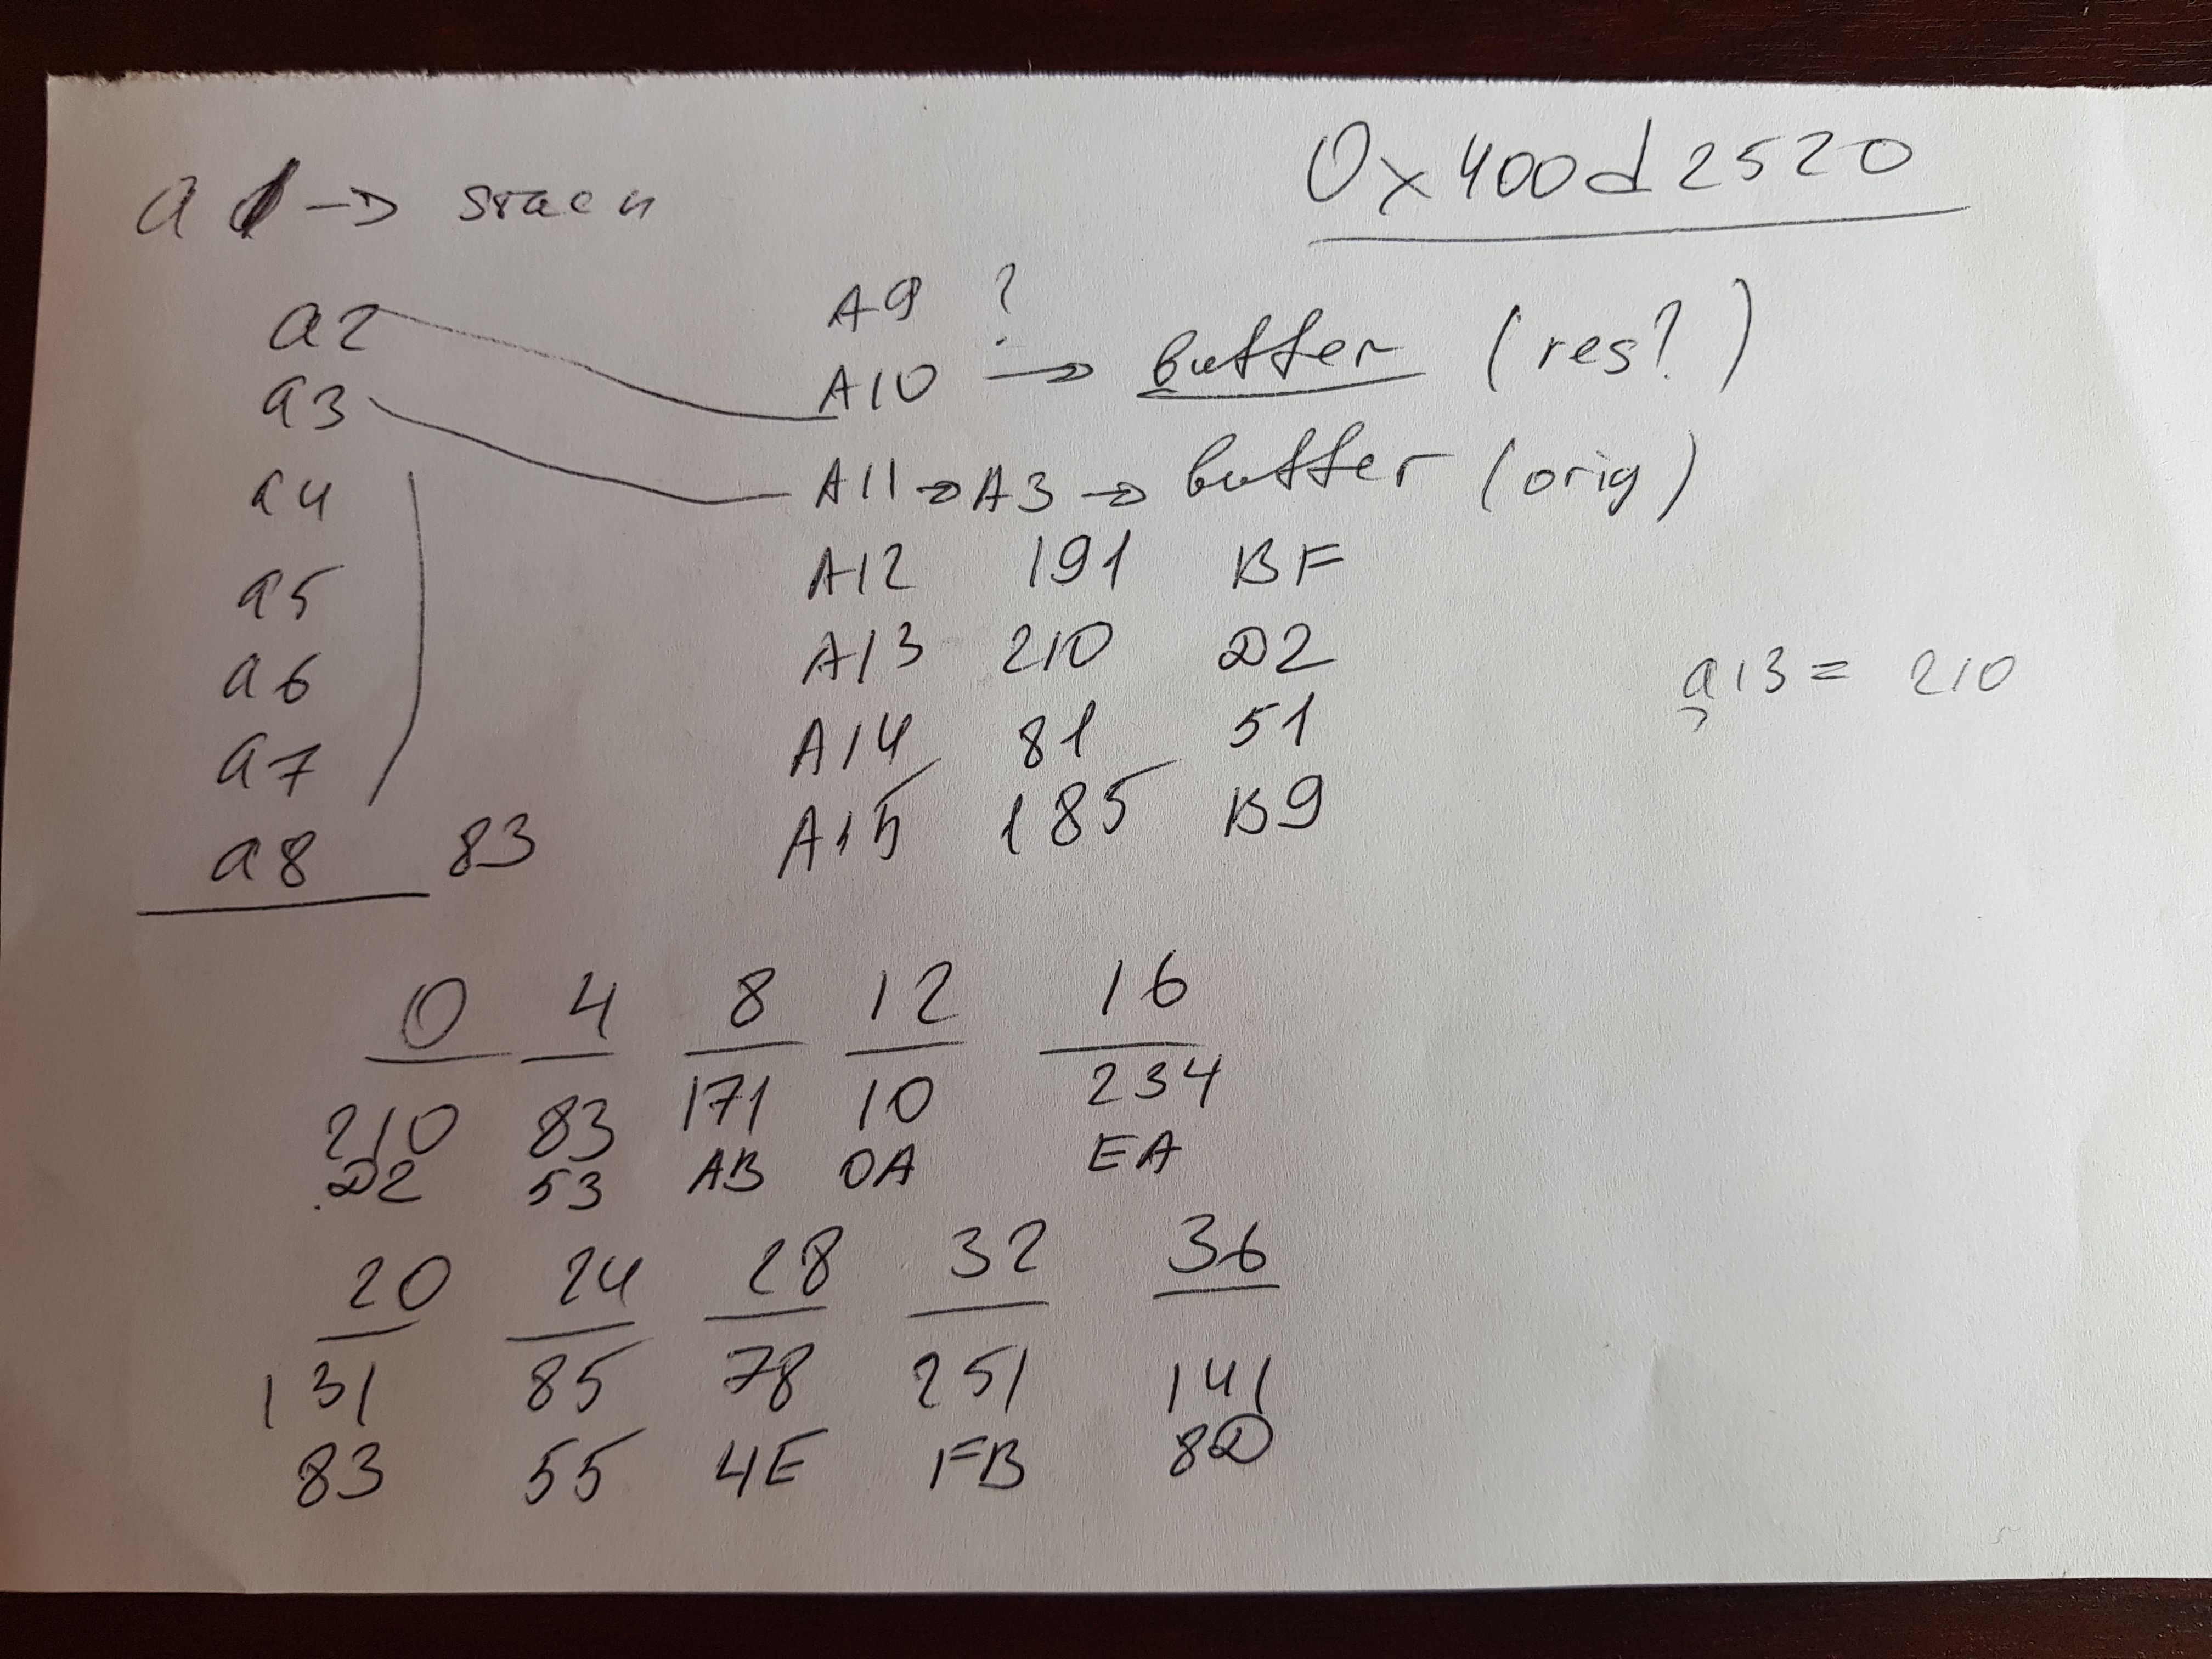 0x400d2520
a1 -> stack
a2
a3
a4
a5
a6
a7
a8 83
A9 ?
A10 -> buffer (res?)
A11 -> A3 -> buffer (orig)
A12 191 BF
A13 210 D2
A14 81 51
A15 185 B9
a13 = 210
0 4 8 12 16
210 83 171 10 234
D2 53 AB 0A EA
20 24 28 32 36
131 85 78 251 141
83 55 4E FB 8D